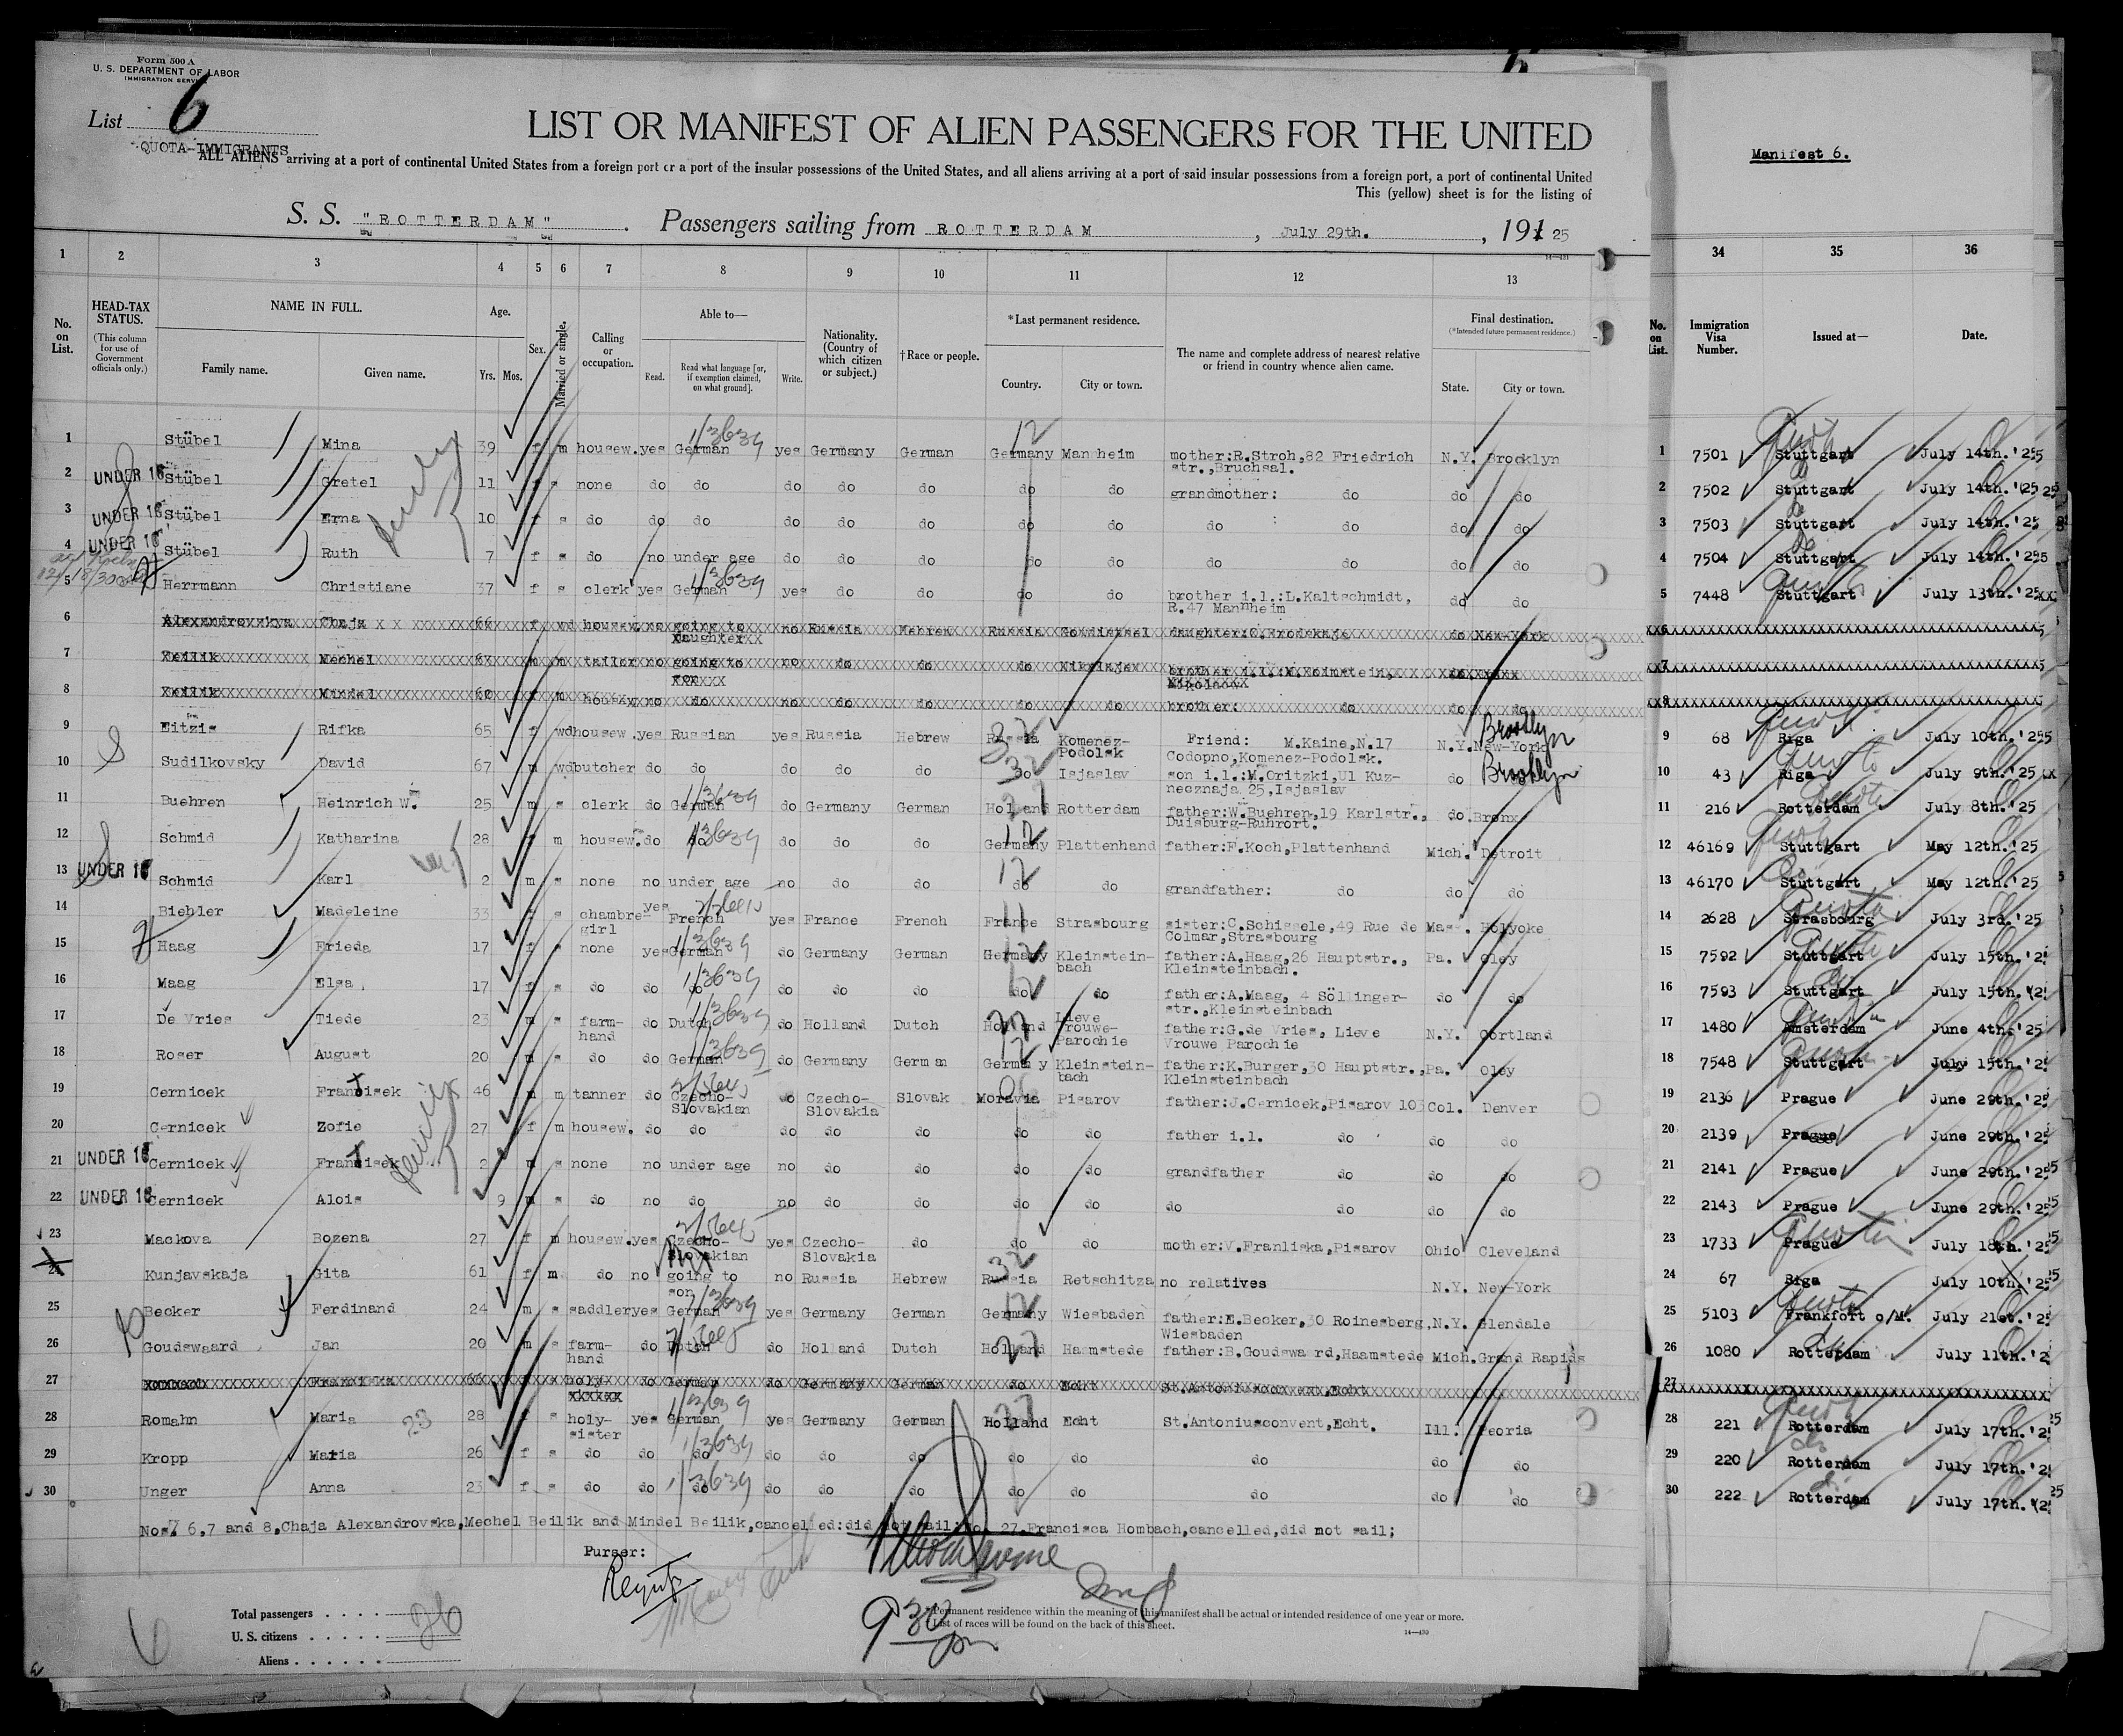 Form 500 A
U. S. DEPARTMENT OF LABOR
IMMIGRATION SERVICE
List 6
QUOTA-IMMIGRANTS
LIST OR MANIFEST OF ALIEN PASSENGERS FOR THE UNITED
ALL ALIENS arriving at a port of continental United States from a foreign port or a port of the insular possessions of the United States, and all aliens arriving at a port of said insular possessions from a foreign port, a port of continental United
This (yellow) sheet is for the listing of
Manifest 6.
S. S. "ROTTERDAM". Passengers sailing from ROTTERDAM, July 29th., 191 25
1 2 3 4 5 6 7 8 9 10 11 12 13 34 35 36
No. on List.
HEAD-TAX STATUS.
(This column for use of Government officials only.)
NAME IN FULL.
Family name. Given name.
Age.
Yrs. Mos.
Sex.
Married or single.
Calling or occupation.
Able to—
Read. Read what language [or, if exemption claimed, on what ground]. Write.
Nationality. (Country of which citizen or subject.)
†Race or people.
*Last permanent residence.
Country. City or town.
The name and complete address of nearest relative or friend in country whence alien came.
Final destination.
(*Intended future permanent residence.)
State. City or town.
No. on List. Immigration Visa Number. Issued at— Date.
1 Stübel Mina 39 f m housew. yes German yes Germany German Germany Mannheim mother:R.Stroh,82 Friedrich str.,Bruchsal. N.Y. Brooklyn 1 7501 Stuttgart July 14th.'25
2 UNDER 16 Stübel Gretel 11 f s none do do do do do do do grandmother: do do do 2 7502 Stuttgart July 14th.'25
3 UNDER 16 Stübel Erna 10 f s do do do do do do do do do do do do 3 7503 Stuttgart July 14th.'25
4 UNDER 16 Stübel Ruth 7 f s do no under age do do do do do do do do do 4 7504 Stuttgart July 14th.'25
5 Herrmann Christiane 37 f s clerk yes German yes do do do do brother i.l.:L.Kaltschmidt, R.47 Mannheim do do 5 7448 Stuttgart July 13th.'25
6 Alexandrovskya Chaja 66 f wd housew. no going to daughter no Russia Hebrew Russia do New-York 6
7 Mechel m m tailor no going to son no do do do Nikolajev 7
8 Mindel 60 f m housew. no do no do do do do brother: do do do 8
9 Eitzis Rifka 65 f wd housew. yes Russian yes Russia Hebrew Russia Komenez-Podolsk Friend: M.Kaine,N.17 Codopno,Komenez-Podolsk. N.Y. New-York Brooklyn 9 68 Riga July 10th.'25
10 Sudilkovsky David 67 m wd butcher do do do do do do Isjaslav son i.l.:M.Oritzki,Ul Kuznecznaja 25,Isjaslav do Brooklyn 10 43 Riga July 9th.'25
11 Buehren Heinrich W. 25 m s clerk do German do Germany German Holland Rotterdam father:W.Buehren,19 Karlstr., Duisburg-Ruhrort. do Bronx 11 216 Rotterdam July 8th.'25
12 Schmid Katharina 28 f m housew. do do do do do Germany Plattenhand father:F.Koch,Plattenhand Mich. Detroit 12 46169 Stuttgart May 12th.'25
13 UNDER 16 Schmid Karl 2 m s none no under age no do do do do grandfather: do do do 13 46170 Stuttgart May 12th.'25
14 Biehler Madeleine 33 f s chambre-girl yes French yes France French France Strasbourg sister:C.Schissele,49 Rue de Colmar,Strasbourg Mass. Holyoke 14 2628 Strasbourg July 3rd.'25
15 Haag Frieda 17 f s none yes German do Germany German Germany Kleinstein-bach father:A.Haag,26 Hauptstr., Kleinsteinbach. Pa. Oley 15 7592 Stuttgart July 15th.'2
16 Maag Elsa 17 f s do do do do do do do do father:A.Maag, 4 Söllinger-str.,Kleinsteinbach do do 16 7593 Stuttgart July 15th.'2
17 De Vries Tiede 23 m s farm-hand do Dutch do Holland Dutch Holland Lieve Vrouwe-Parochie father:G.de Vries, Lieve Vrouwe Parochie N.Y. Cortland 17 1480 Amsterdam June 4th.'25
18 Roser August 20 m s do do German do Germany German Germany Kleinstein-bach father:K.Burger,30 Hauptstr., Kleinsteinbach Pa. Oley 18 7548 Stuttgart July 15th.'2
19 Cernicek Francisek 46 m m tanner do Czecho-Slovakian do Czecho-Slovakia Slovak Moravia Pisarov father:J.Cernicek,Pisarov 103 Col. Denver 19 2136 Prague June 29th.'25
20 Cernicek Zofie 27 f m housew. do do do do do do do father i.l. do do do 20 2139 Prague June 29th.'25
21 UNDER 16 Cernicek Francisek 2 m s none no under age no do do do do grandfather do do do 21 2141 Prague June 29th.'25
22 UNDER 16 Cernicek Alois 9 m s do no do no do do do do do do do do 22 2143 Prague June 29th.'25
23 Mackova Bozena 27 f m housew. yes Czecho-Slovakian yes Czecho-Slovakia do do do mother:V.Franliska,Pisarov Ohio Cleveland 23 1733 Prague July 18th.'25
24 Kunjavskaja Gita 61 f m do no going to son no Russia Hebrew Russia Retschitza no relatives N.Y. New-York 24 67 Riga July 10th.'25
25 Becker Ferdinand 24 m s saddler yes German yes Germany German Germany Wiesbaden father:E.Becker,30 Roinesberg, Wiesbaden N.Y. Glendale 25 5103 Frankfort o/M. July 21st.'25
26 Goudswaard Jan 20 m s farm-hand do Dutch do Holland Dutch Holland Haamstede father:B.Goudswaard,Haamstede Mich. Grand Rapids 26 1080 Rotterdam July 11th.'2
27 s holy- do German do Germany German do Echt St.Antoniusconvent,Echt 27
28 Romahn Maria 28 f s holy-sister yes German yes Germany German Holland Echt St.Antoniusconvent,Echt. Ill. Peoria 28 221 Rotterdam July 17th.'2
29 Kropp Maria 26 f s do do do do do do do do do do do 29 220 Rotterdam July 17th.'2
30 Unger Anna 23 f s do do do do do do do do do do do 30 222 Rotterdam July 17th.'2
Nos. 6,7 and 8,Chaja Alexandrovska,Mechel Beilik and Mindel Beilik,cancelled:did not sail:No. 27.Francisca Hombach,cancelled,did not sail;
Purser:
Total passengers 26
U. S. citizens
Aliens
6
9 30 pm
*Permanent residence within the meaning of this manifest shall be actual or intended residence of one year or more.
†List of races will be found on the back of this sheet.
14—430